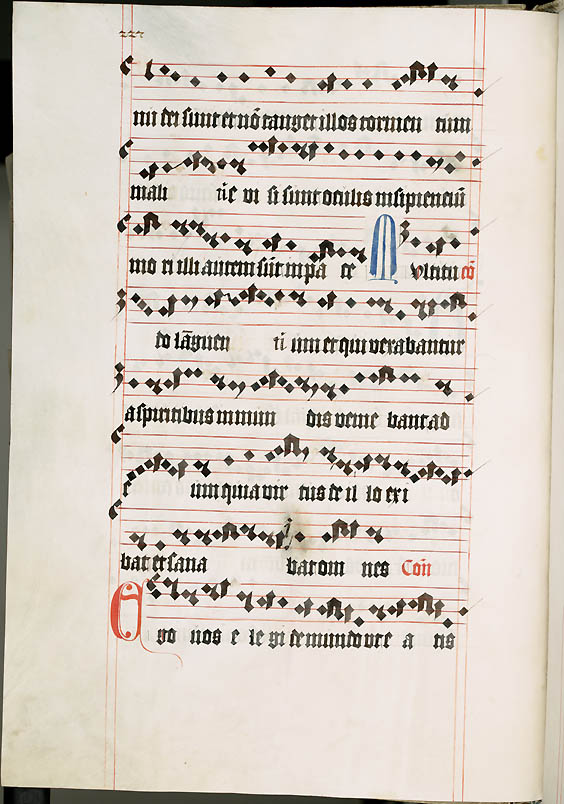 227
ni dei sunt et nō tanget illos tormen tum
mali tie vi si sunt oculis insipienciū
mo ri illi autem sūt in pa ce Multitu cō
do lāguen tiū um et qui vexabantur
a spiritibus inmun dis venie bant ad
e um quia vir tus de il lo exi
bat et sana bat om nes Com̄
Ego vos e le gi de mundo vt e a tis